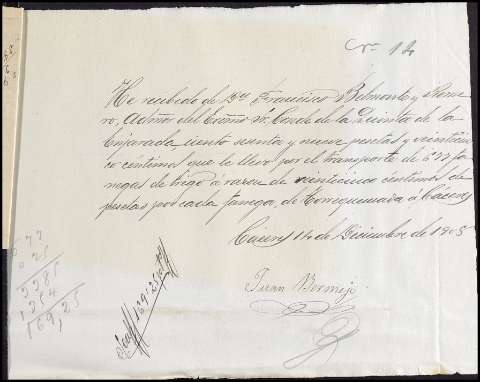 Nº 14
He recibido de Dn Francisco Belmonte y Rome
ro, Admor del Exmo Sr. Conde de la Quinta de la
Enjarada ciento sesenta y nueve pesetas y veinticin
co céntimos que se llevó por el transporte de 677 fa
negas de trigo á razon de veinticinco centimos de
pesetas por cada fanega, de Torrequemada á Cáceres
Cáceres 14 de Diciembre de 1905
Juan Bermejo
169'25
677
0 25
3385
1354
169,25